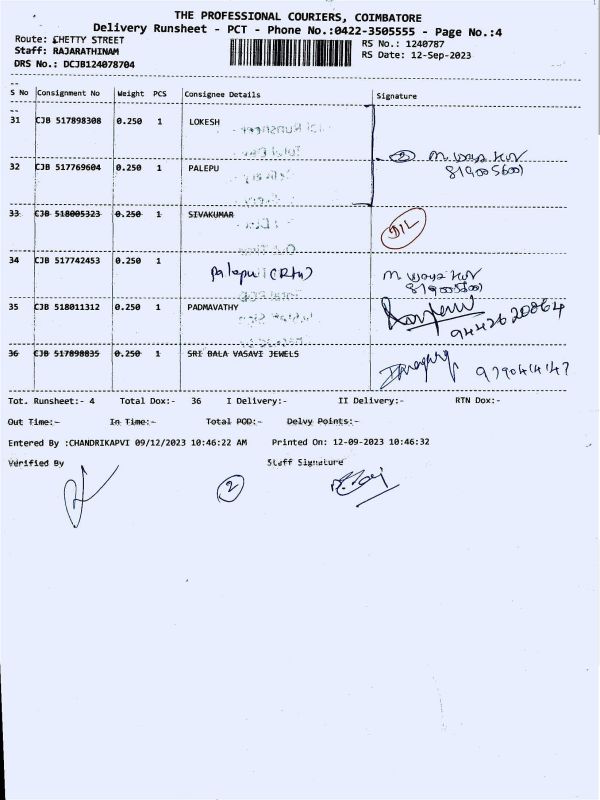 THE PROFESSIONAL COURIERS, COIMBATORE
Delivery Runsheet - PCT - Phone No.:0422-3505555 - Page No.:4
Route: CHETTY STREET RS No.: 1240787
Staff: RAJARATHINAM RS Date: 12-Sep-2023
DRS No.: DCJB124078704
S No Consignment No Weight PCS Consignee Details Signature
31 CJB 517898308 0.250 1 LOKESH
32 CJB 517769604 0.250 1 PALEPU
33 CJB 518005323 0.250 1 SIVAKUMAR DIL
34 CJB 517742453 0.250 1
Palepu (Rtn)
35 CJB 518011312 0.250 1 PADMAVATHY
9442620864
36 CJB 517898835 0.250 1 SRI BALA VASAVI JEWELS
Tot. Runsheet:- 4 Total Dox:- 36 I Delivery:- II Delivery:- RTN Dox:-
Out Time:- In Time:- Total POD:- Delvy Points:-
Entered By :CHANDRIKAPVI 09/12/2023 10:46:22 AM Printed On: 12-09-2023 10:46:32
Verified By Staff Signature
2